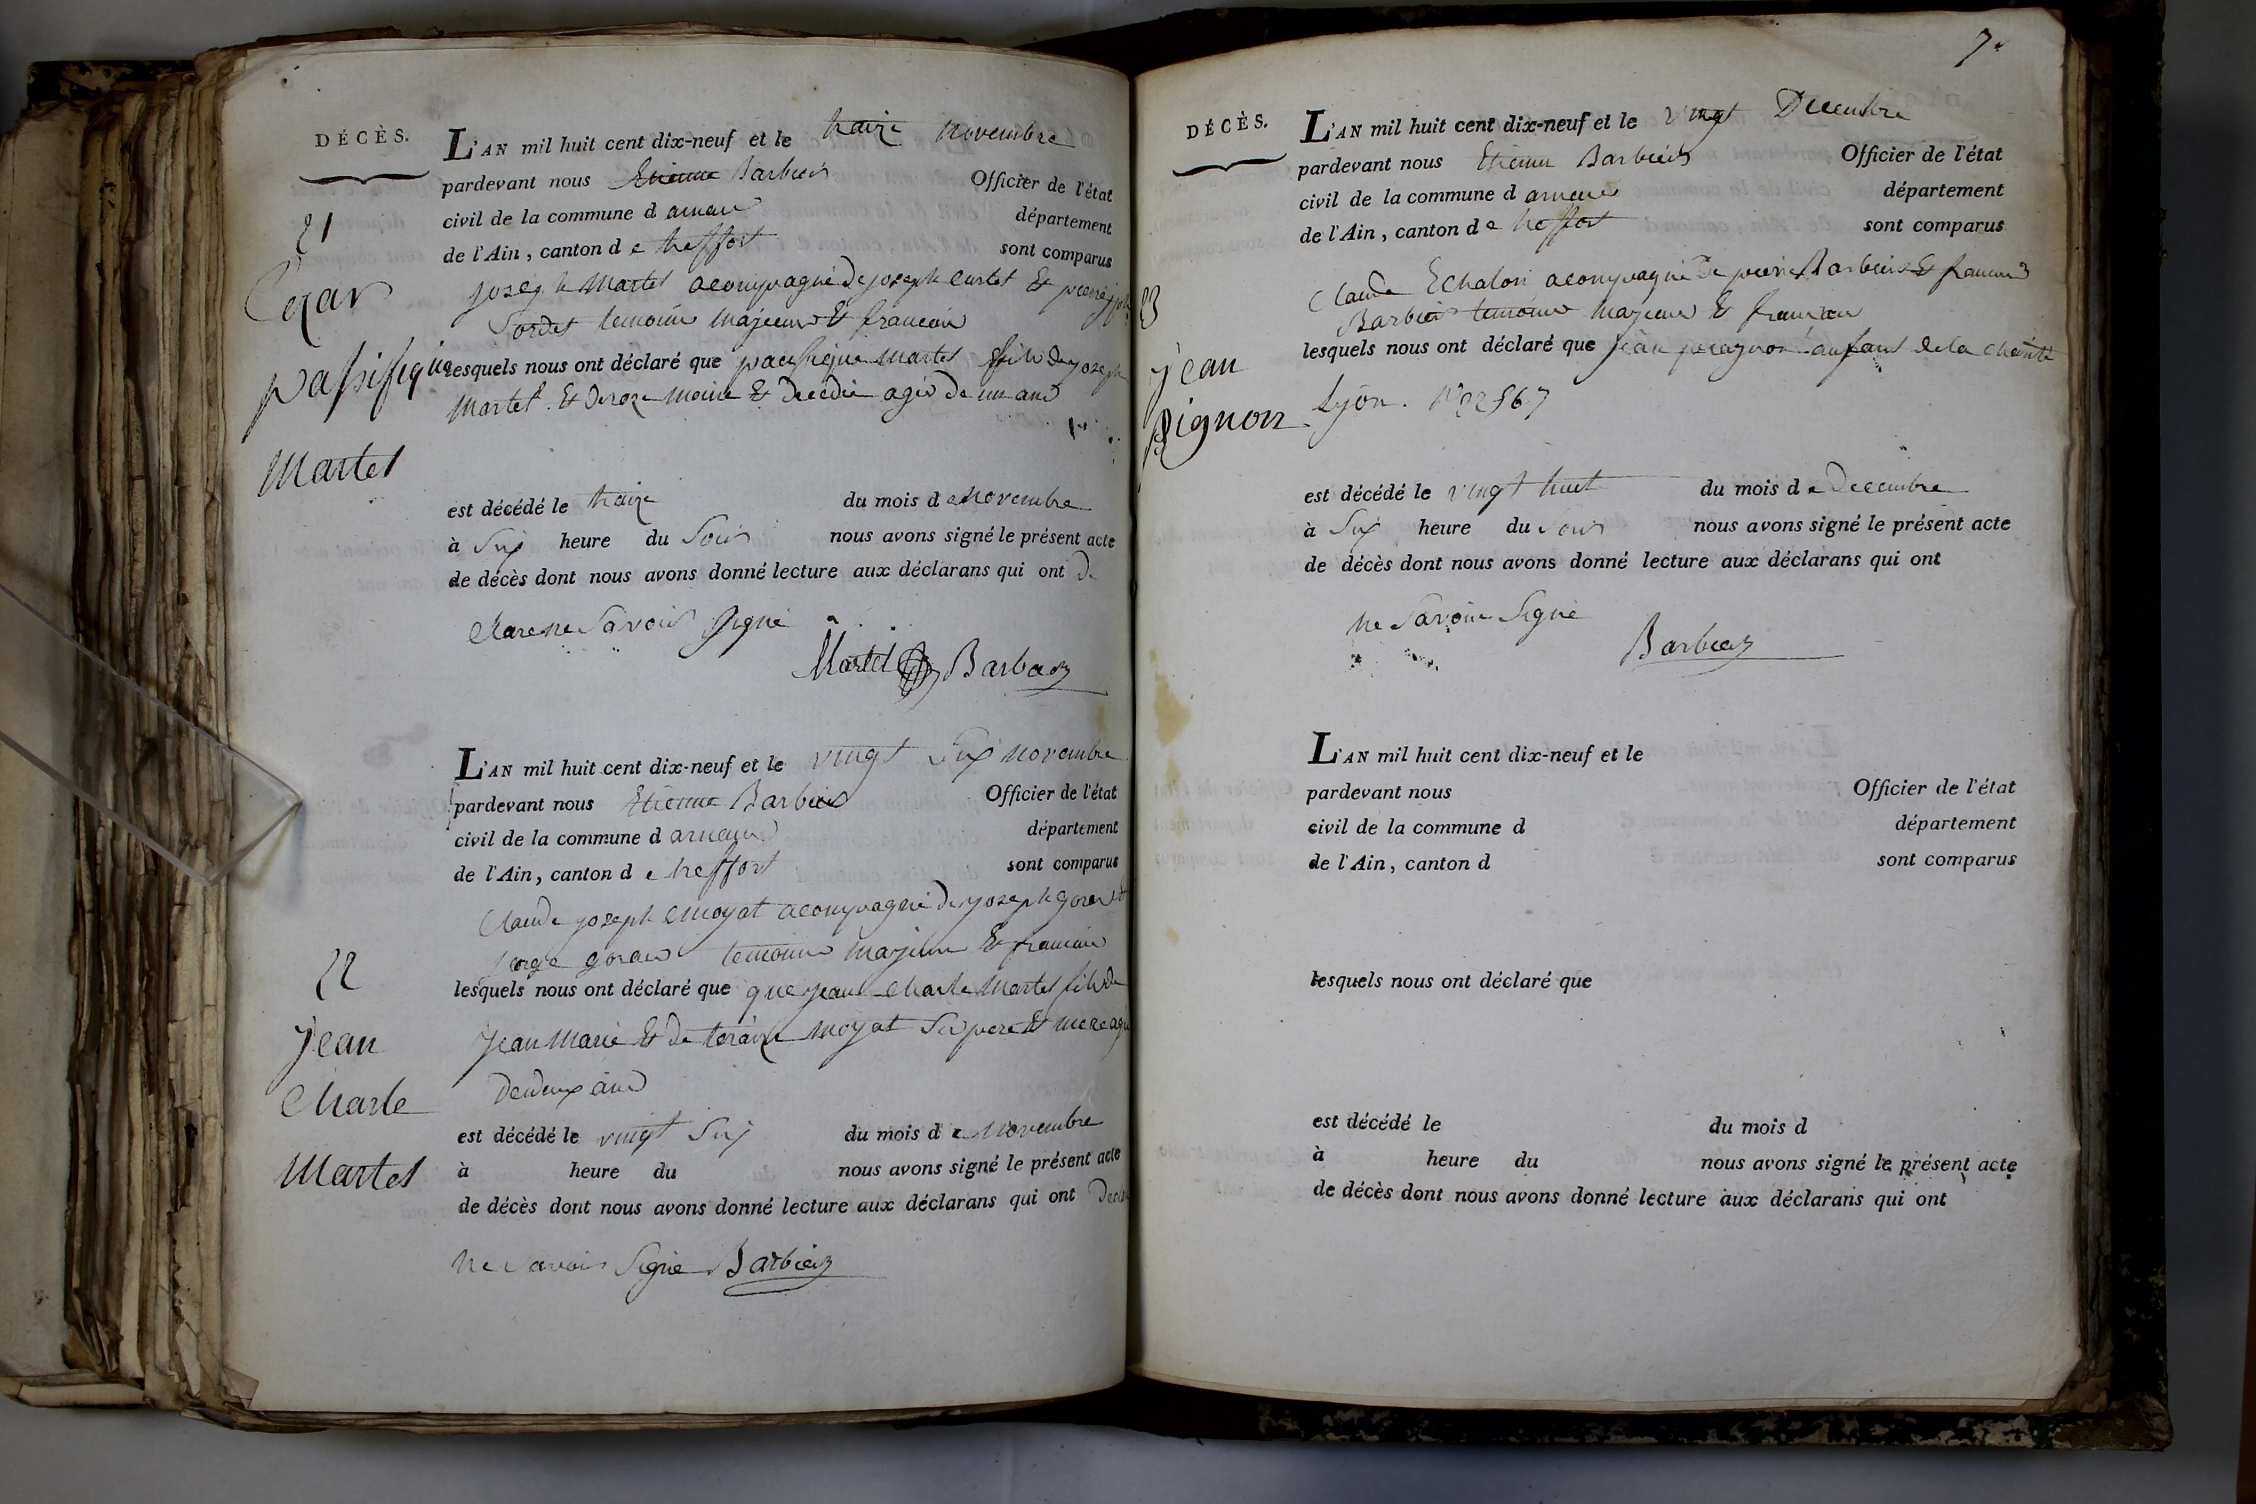 DÉCÈS.
21
Cezar
passifique
Martel
L'AN mil huit cent dix-neuf et le traize novembre
pardevant nous Etienne Barbier Officier de l'état
civil de la commune d arnan département
de l'Ain, canton d e treffort sont comparus
joseph Martel acompagné de joseph Curlet & pierre
Sordet temoins majeurs & francais
lesquels nous ont déclaré que passifique Martel fils de joseph
Martel & de roze Moine & decedée agé de un ans
est décédé le traize du mois d e novembre
à Six heure du Soir nous avons signé le présent acte
de décès dont nous avons donné lecture aux déclarans qui ont de
clare ne Savoir Signé
Martel Barbier
22
jean
Charle
Martel
L'AN mil huit cent dix-neuf et le vingt Six novembre
pardevant nous Etienne Barbier Officier de l'état
civil de la commune d arnans département
de l'Ain, canton d e treffort sont comparus
Claude joseph Moyat acompagné de joseph goran
goran temoins majeurs & francais
lesquels nous ont déclaré que que jean Charle Martel fils de
jean Marie & de teraize Moyat Ses pere & mere agé
de deux ans
est décédé le vingt Six du mois d e Novembre
à heure du nous avons signé le présent acte
de décès dont nous avons donné lecture aux déclarans qui ont
ne Savoir Signé Barbier
7.
DÉCÈS.
23
jean
pignon
L'AN mil huit cent dix-neuf et le vingt Decembre
pardevant nous Etienne Barbier Officier de l'état
civil de la commune d arnans département
de l'Ain, canton d e treffort sont comparus
Claude Echalon acompagné de pierre Barbier & francois
Barbier temoins majeurs & francais
lesquels nous ont déclaré que jean anfant de la charité
Lyon. N° 22567
est décédé le vingt huit du mois d e Decembre
à Six heure du Soir nous avons signé le présent acte
de décès dont nous avons donné lecture aux déclarans qui ont
ne Savoir Signé
Barbier
L'AN mil huit cent dix-neuf et le
pardevant nous Officier de l'état
civil de la commune d département
de l'Ain, canton d sont comparus
lesquels nous ont déclaré que
est décédé le du mois d
à heure du nous avons signé le présent acte
de décès dont nous avons donné lecture aux déclarans qui ont